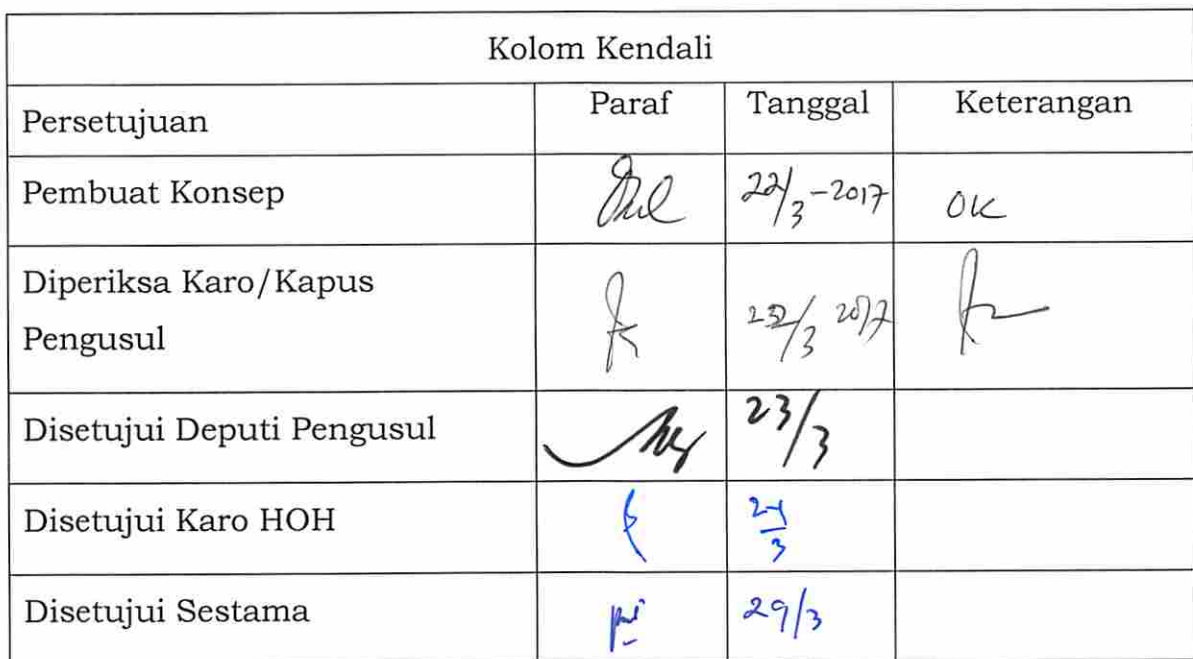 Kolom Kendali
Persetujuan Paraf Tanggal Keterangan
Pembuat Konsep 22/3-2017 OK
Diperiksa Karo/Kapus
Pengusul /3 2017
Disetujui Deputi Pengusul 23/3
Disetujui Karo HOH 24/3
Disetujui Sestama 29/3